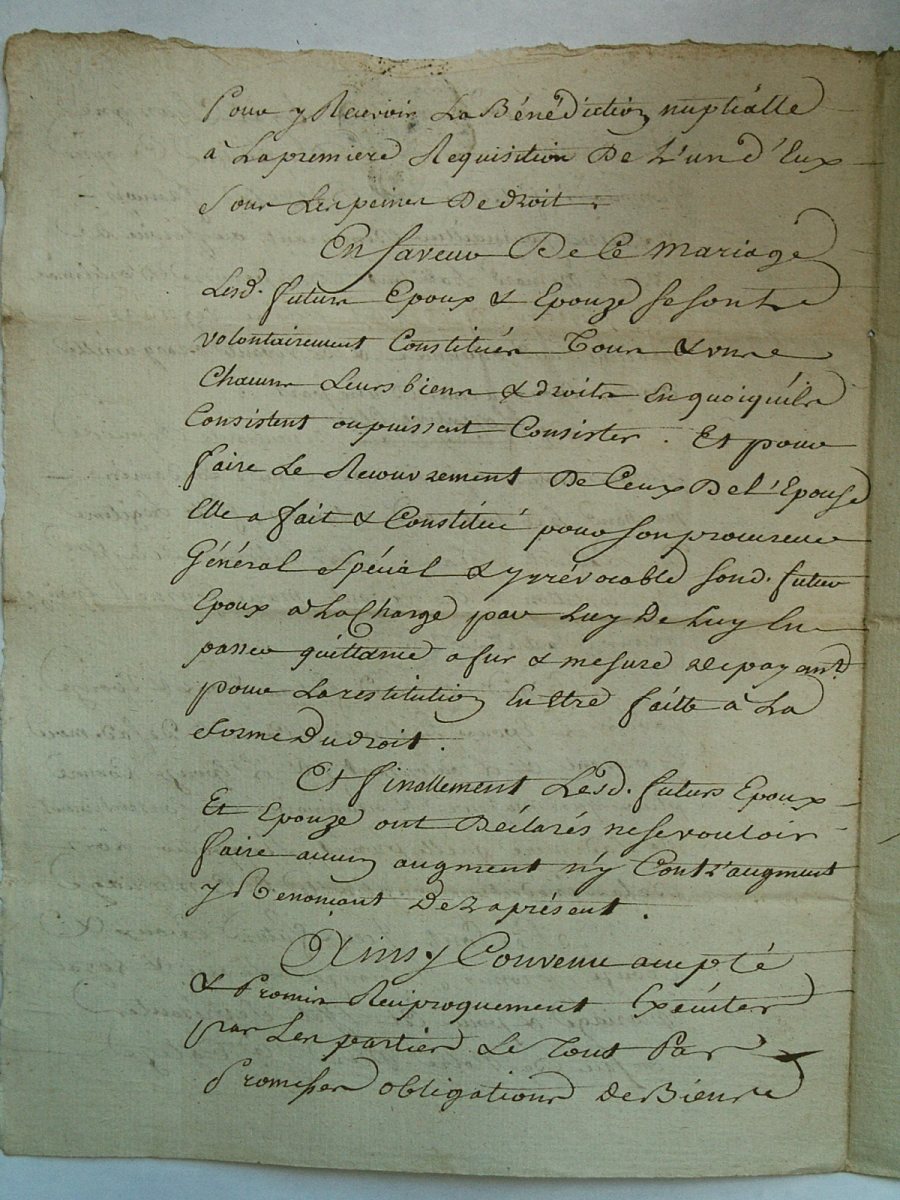 Pour y Recevoir La Bénédiction nuptialle
à La premiere Requisition De L'un d'Eux
Sous Les peines De droit.
En faveur De Ce mariage
Lesd. futurs Epoux & Epouze se sont
volontairement Constitués Tous & uns
Chacuns Leurs biens & droits En quoiquíls
Consistent ou puissent Consister. Et pour
faire Le Recouvrement De Ceux De l'Epouse
Elle a fait & Constitué pour Son procureur
Général Spécial & yrrévocable Sond. futur
Epoux à La Charge par Luy De Luy En
passer quittance a fur & mesure des payants
pour La restitution En Etre faitte à La
forme Du droit.
Et finallement Lesd. futurs Epoux
Et Epouze ont Déclarés ne se vouloir
faire aucun augment n'y Contr'augment
y Renonçant Dezaprésent.
Ainsy Convenu accepté
& Promis Réciproquement Exécuter
par Les parties Le Tout Par
Promesses obligations de Biens